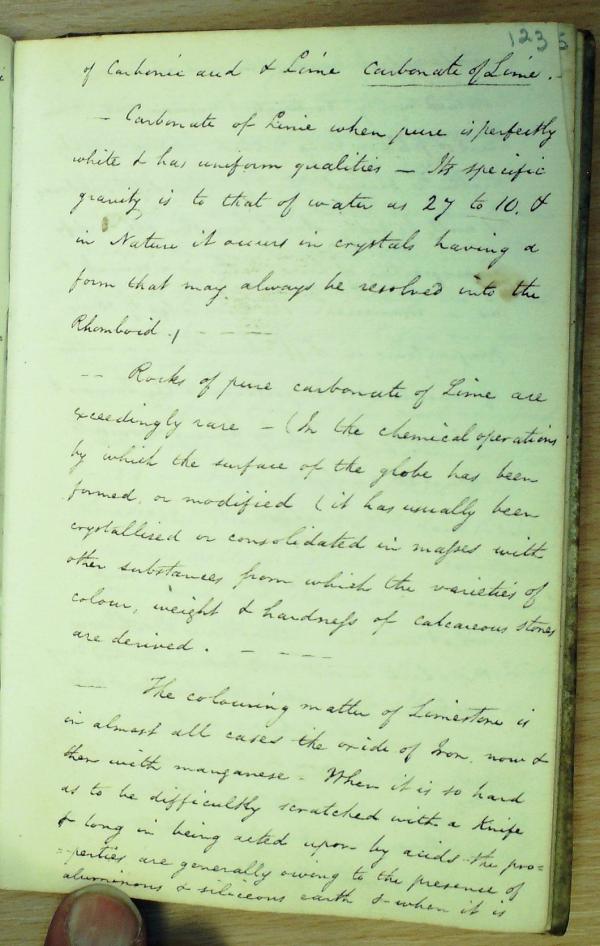 123
5
of Carbonic acid & Lime Carbonate of Lime.
— Carbonate of Lime when pure is perfectly
white & has uniform qualities — Its specific
gravity is to that of water as 27 to 10. &
in Nature it occurs in crystals having a
form that may always be resolved into the
Rhomboid. — — —
— — Rocks of pure carbonate of Lime are
exceedingly rare — (In the chemical operations
by which the surface of the globe has been
formed, or modified (it has usually been
crystallised or consolidated in masses with
other substances from which the varieties of
colour, weight & hardness of calcareous stones
are derived. — — — —
— The colouring matter of Limestone is
in almost all cases the oxide of Iron, now &
then with manganese. When it is so hard
as to be difficultly scratched with a Knife
& long in being acted upon by acids the pro=
=perties are generally owing to the presence of
aluminous & siliceous earth & when it is